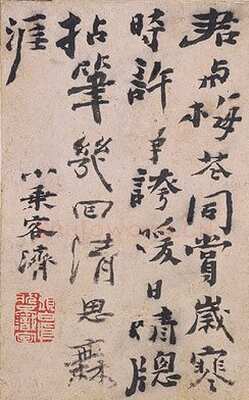 君与梅花同賞歲寒
時許身誇暖日晴窓
拈筆幾回清思
涯
小乗客濟